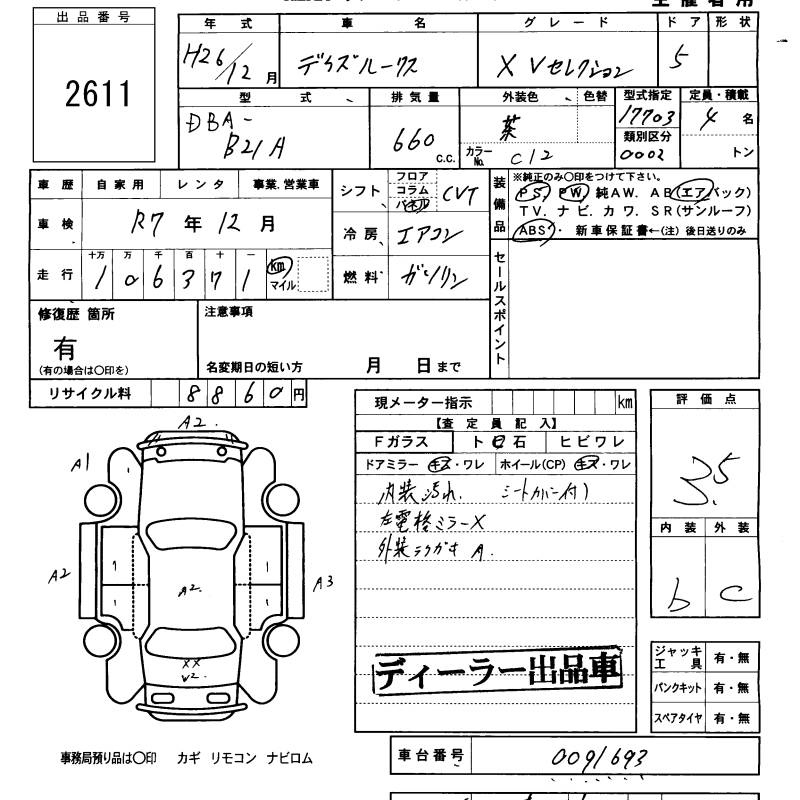 出品番号
2611
年式 車名 グレード ドア 形状
H26/12月 デイズルークス X Vセレクション 5
型式 排気量 外装色 色替 型式指定 定員・積載
DBA-B21A 660 c.c. 茶 17703 4名
カラーNo. C12 類別区分 0002 トン
車歴 自家用 レンタ 事業.営業車
車検 R7年12月
走行 十万 万 千 百 十 一
1 0 6 3 7 1 km マイル
シフト フロア コラム パネル CVT
冷房 エアコン
燃料 ガソリン
装備品
※純正のみ○印をつけて下さい。
PS. PW. 純AW. AB(エアバック)
TV. ナビ. カワ. SR(サンルーフ)
ABS・新車保証書←(注)後日送りのみ
セールスポイント
修復歴 箇所
有
(有の場合は○印を)
注意事項
名変期日の短い方 月 日まで
リサイクル料 8860円
現メーター指示 km
【査定員記入】
Fガラス ト石 ヒビワレ
ドアミラー キズ・ワレ ホイール(CP) キズ・ワレ
内装汚れ. シートカバー付)
左電格ミラーX
外装ラクガキ A.
ディーラー出品車
評価点
3.5
内装 外装
b c
A2.
A1
A2
A3
A2.
XX
V2.
ジャッキ工具 有・無
パンクキット 有・無
スペアタイヤ 有・無
事務局預り品は○印 カギ リモコン ナビロム
車台番号 0091693